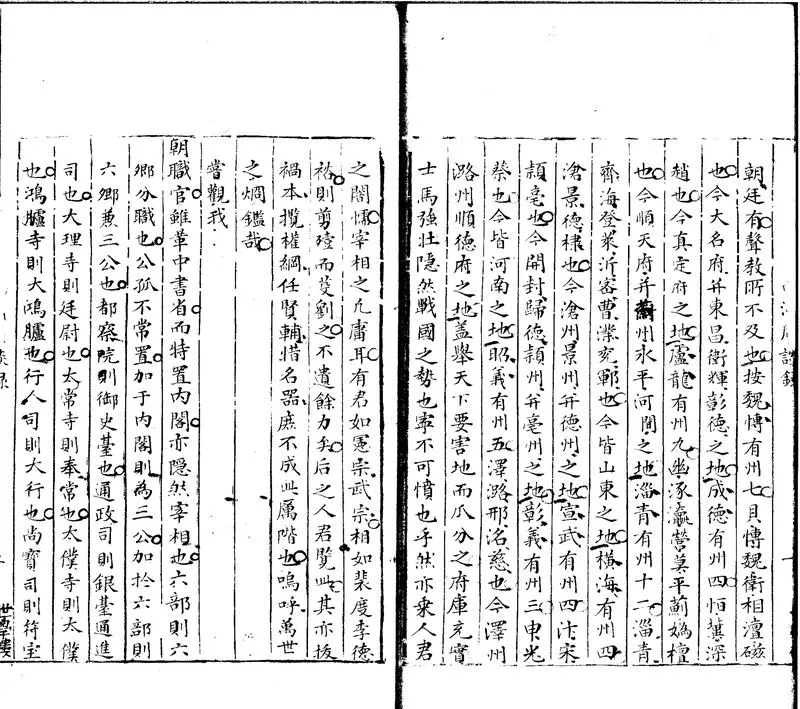 朝廷有聲教所不及也按魏博有州七貝博魏衛相澶磁
也今大名府并東昌衛輝彰德之地成德有州四恒冀深
趙也今真定府之地盧龍有州九幽涿瀛營莫平薊媯檀
也今順天府并薊州永平河間之地淄青有州十二淄青
齊海登萊沂密曹濮兗鄆也今皆山東之地橫海有州四
滄景德棣也今滄州景州并德州之地宣武有州四汴宋
潁亳也今開封歸德潁州并亳州之地彰義有州三申光
蔡也今皆河南之地昭義有州五澤潞邢洺慈也今澤州
潞州順德府之地蓋舉天下要害地而瓜分之府庫充實
士馬強壯隱然戰國之勢也寧不可憤也乎然亦乘人君
之闇懦宰相之凡庸耳有君如憲宗武宗相如裴度李德
裕則剪殪而芟劉之不遺餘力矣后之人君覽此其亦拔
禍本攬權綱任賢輔惜名器庶不成此厲階也嗚呼萬世
之烱鑑哉
嘗觀我
朝職官雖革中書省而特置内閣亦隱然宰相也六部則六
卿分職也公孤不常置加于内閣則為三公加於六部則
六卿兼三公也都察院則御史臺也通政司則銀臺通進
司也大理寺則廷尉也太常寺則奉常也太僕寺則太僕
也鴻臚寺則大鴻臚也行人司則大行也尚寶司則符宝